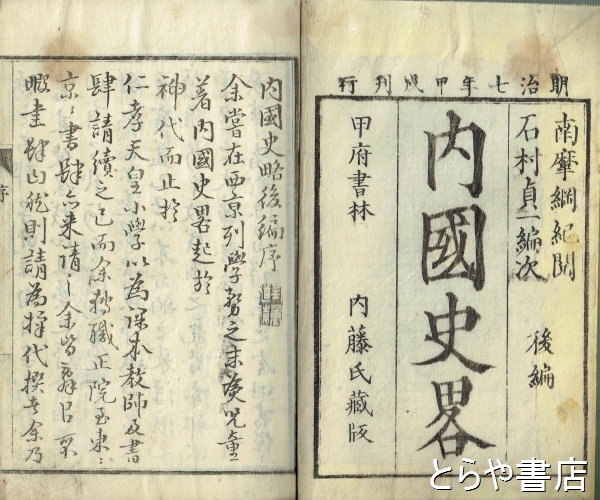 明治七年甲戌刊行
南摩綱紀閲
石村貞一編次
後編
内國史畧
甲府書林
内藤氏蔵版
内國史略後編序
余嘗在西京列學務之末為児童
著内國史畧起於
神代而止於
仁孝天皇小學以為課本教師及書
肆請續之已而余轉職正院至東
京書肆亦来請余皆辞
暇書肆則請為擇代撰者余乃
序
とらや書店